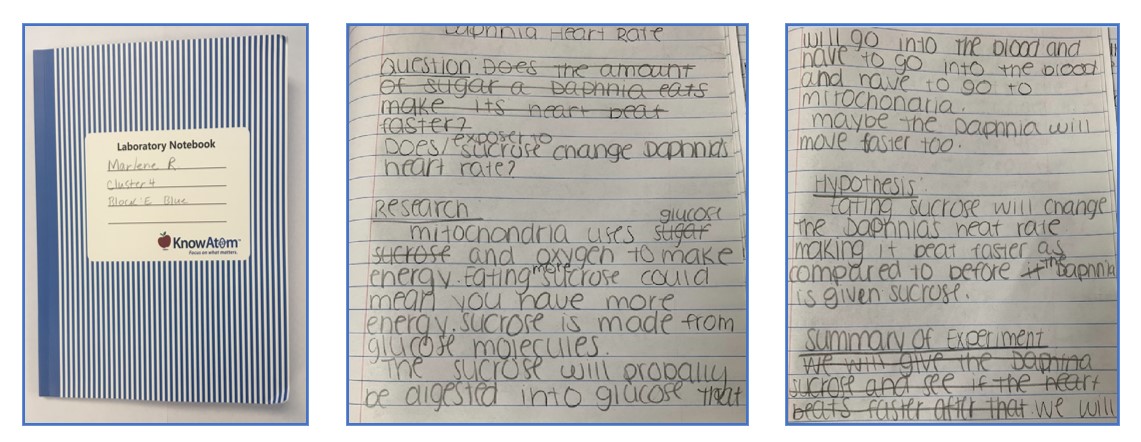 Laboratory Notebook
Marlene R
Cluster 4
Block: E Blue
KnowAtom™
Focus on what matters.
Daphnia Heart Rate
Question: Does the amount
of sugar a Daphnia eats
make its heart beat
faster?
exposer to
Does/sucrose change Daphnias
heart rate?
Research
glucose
mitochondria uses sugar
sucrose and oxygen to make
more
energy. Eating sucrose could
mean you have more
energy. sucrose is made from
glucose molecules.
The sucrose will probally
be digested into glucose that
will go into the blood and
have to go into the blood
and have to go to
mitochondria.
maybe the Daphnia will
move faster too.
Hypothesis:
Eating sucrose will change
the Daphnias heat rate
making it beat faster as
compared to before it the Daphnia
is given sucrose.
Summary of Experiment
We will give the Daphnia
sucrose and see if the heart
beats faster after that. We will